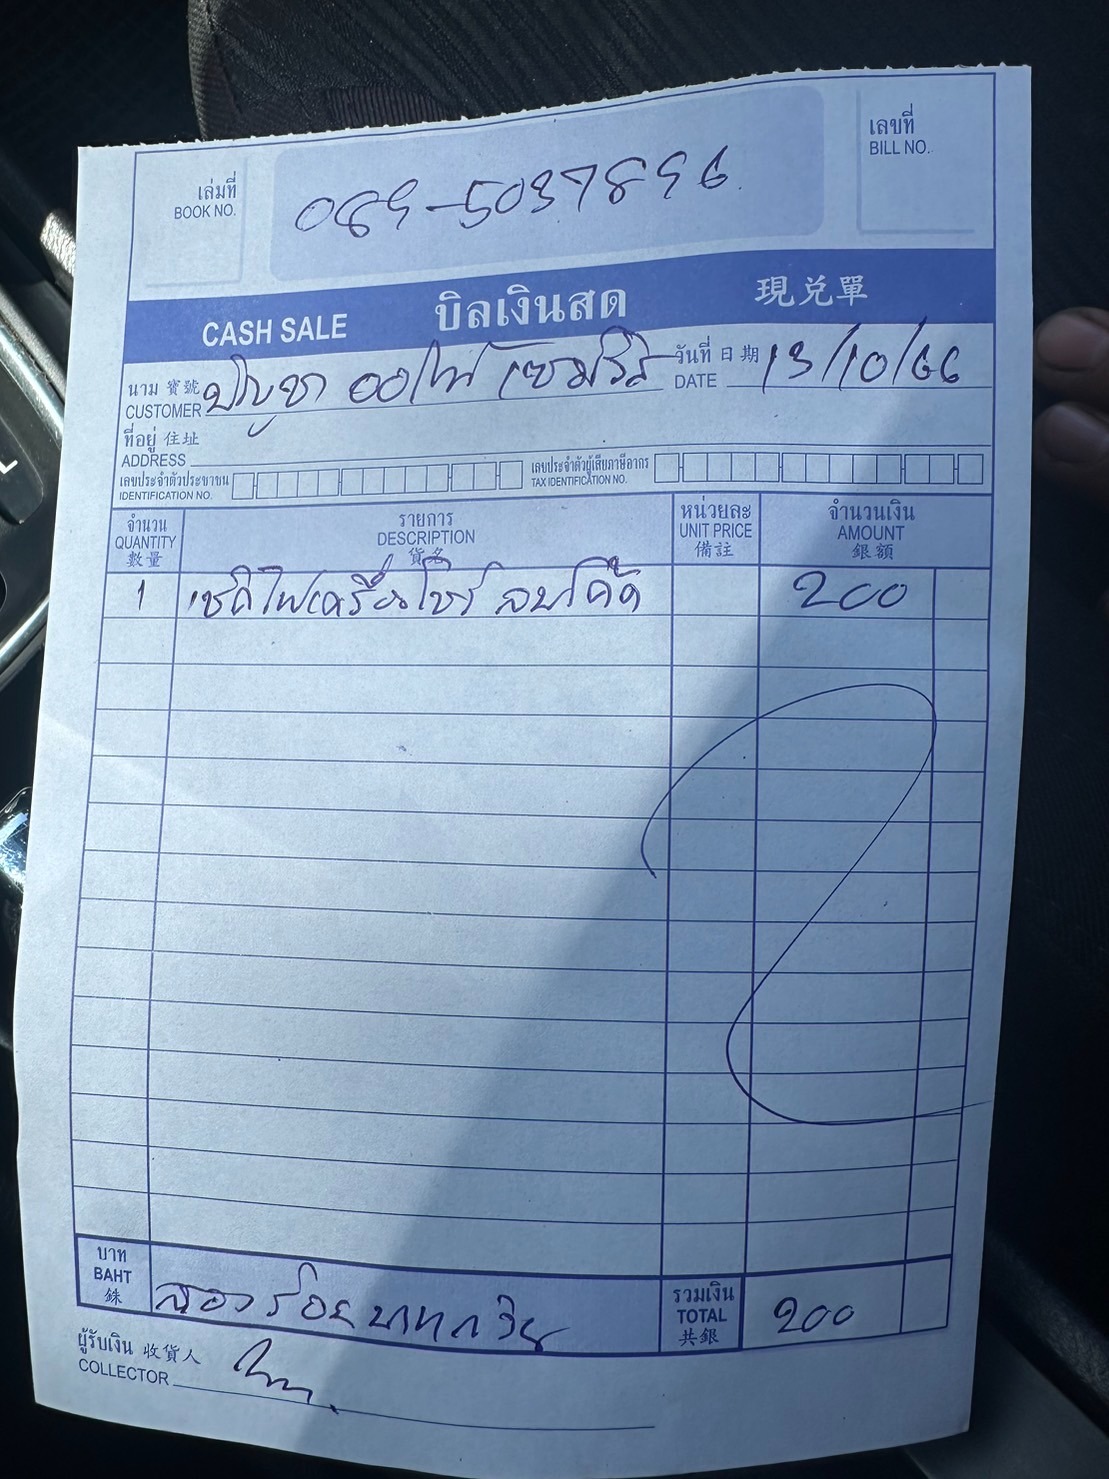 เล่มที่
BOOK NO.
089-5037896
เลขที่
BILL NO.
CASH SALE บิลเงินสด 現兌單
นาม 寶號
CUSTOMER ปัญชา ออโต้ เซอร์วิส
วันที่ 日期
DATE 13/10/66
ที่อยู่ 住址
ADDRESS
เลขประจำตัวประชาชน
IDENTIFICATION NO.
เลขประจำตัวผู้เสียภาษีอากร
TAX IDENTIFICATION NO.
จำนวน
QUANTITY
數量
รายการ
DESCRIPTION
貨名
หน่วยละ
UNIT PRICE
備註
จำนวนเงิน
AMOUNT
銀額
1 เช็คไฟเครื่องโชว์ ลบโค้ด 200
บาท
BAHT
銖
สองร้อยบาทถ้วน
รวมเงิน
TOTAL
共銀
200
ผู้รับเงิน 收貨人
COLLECTOR